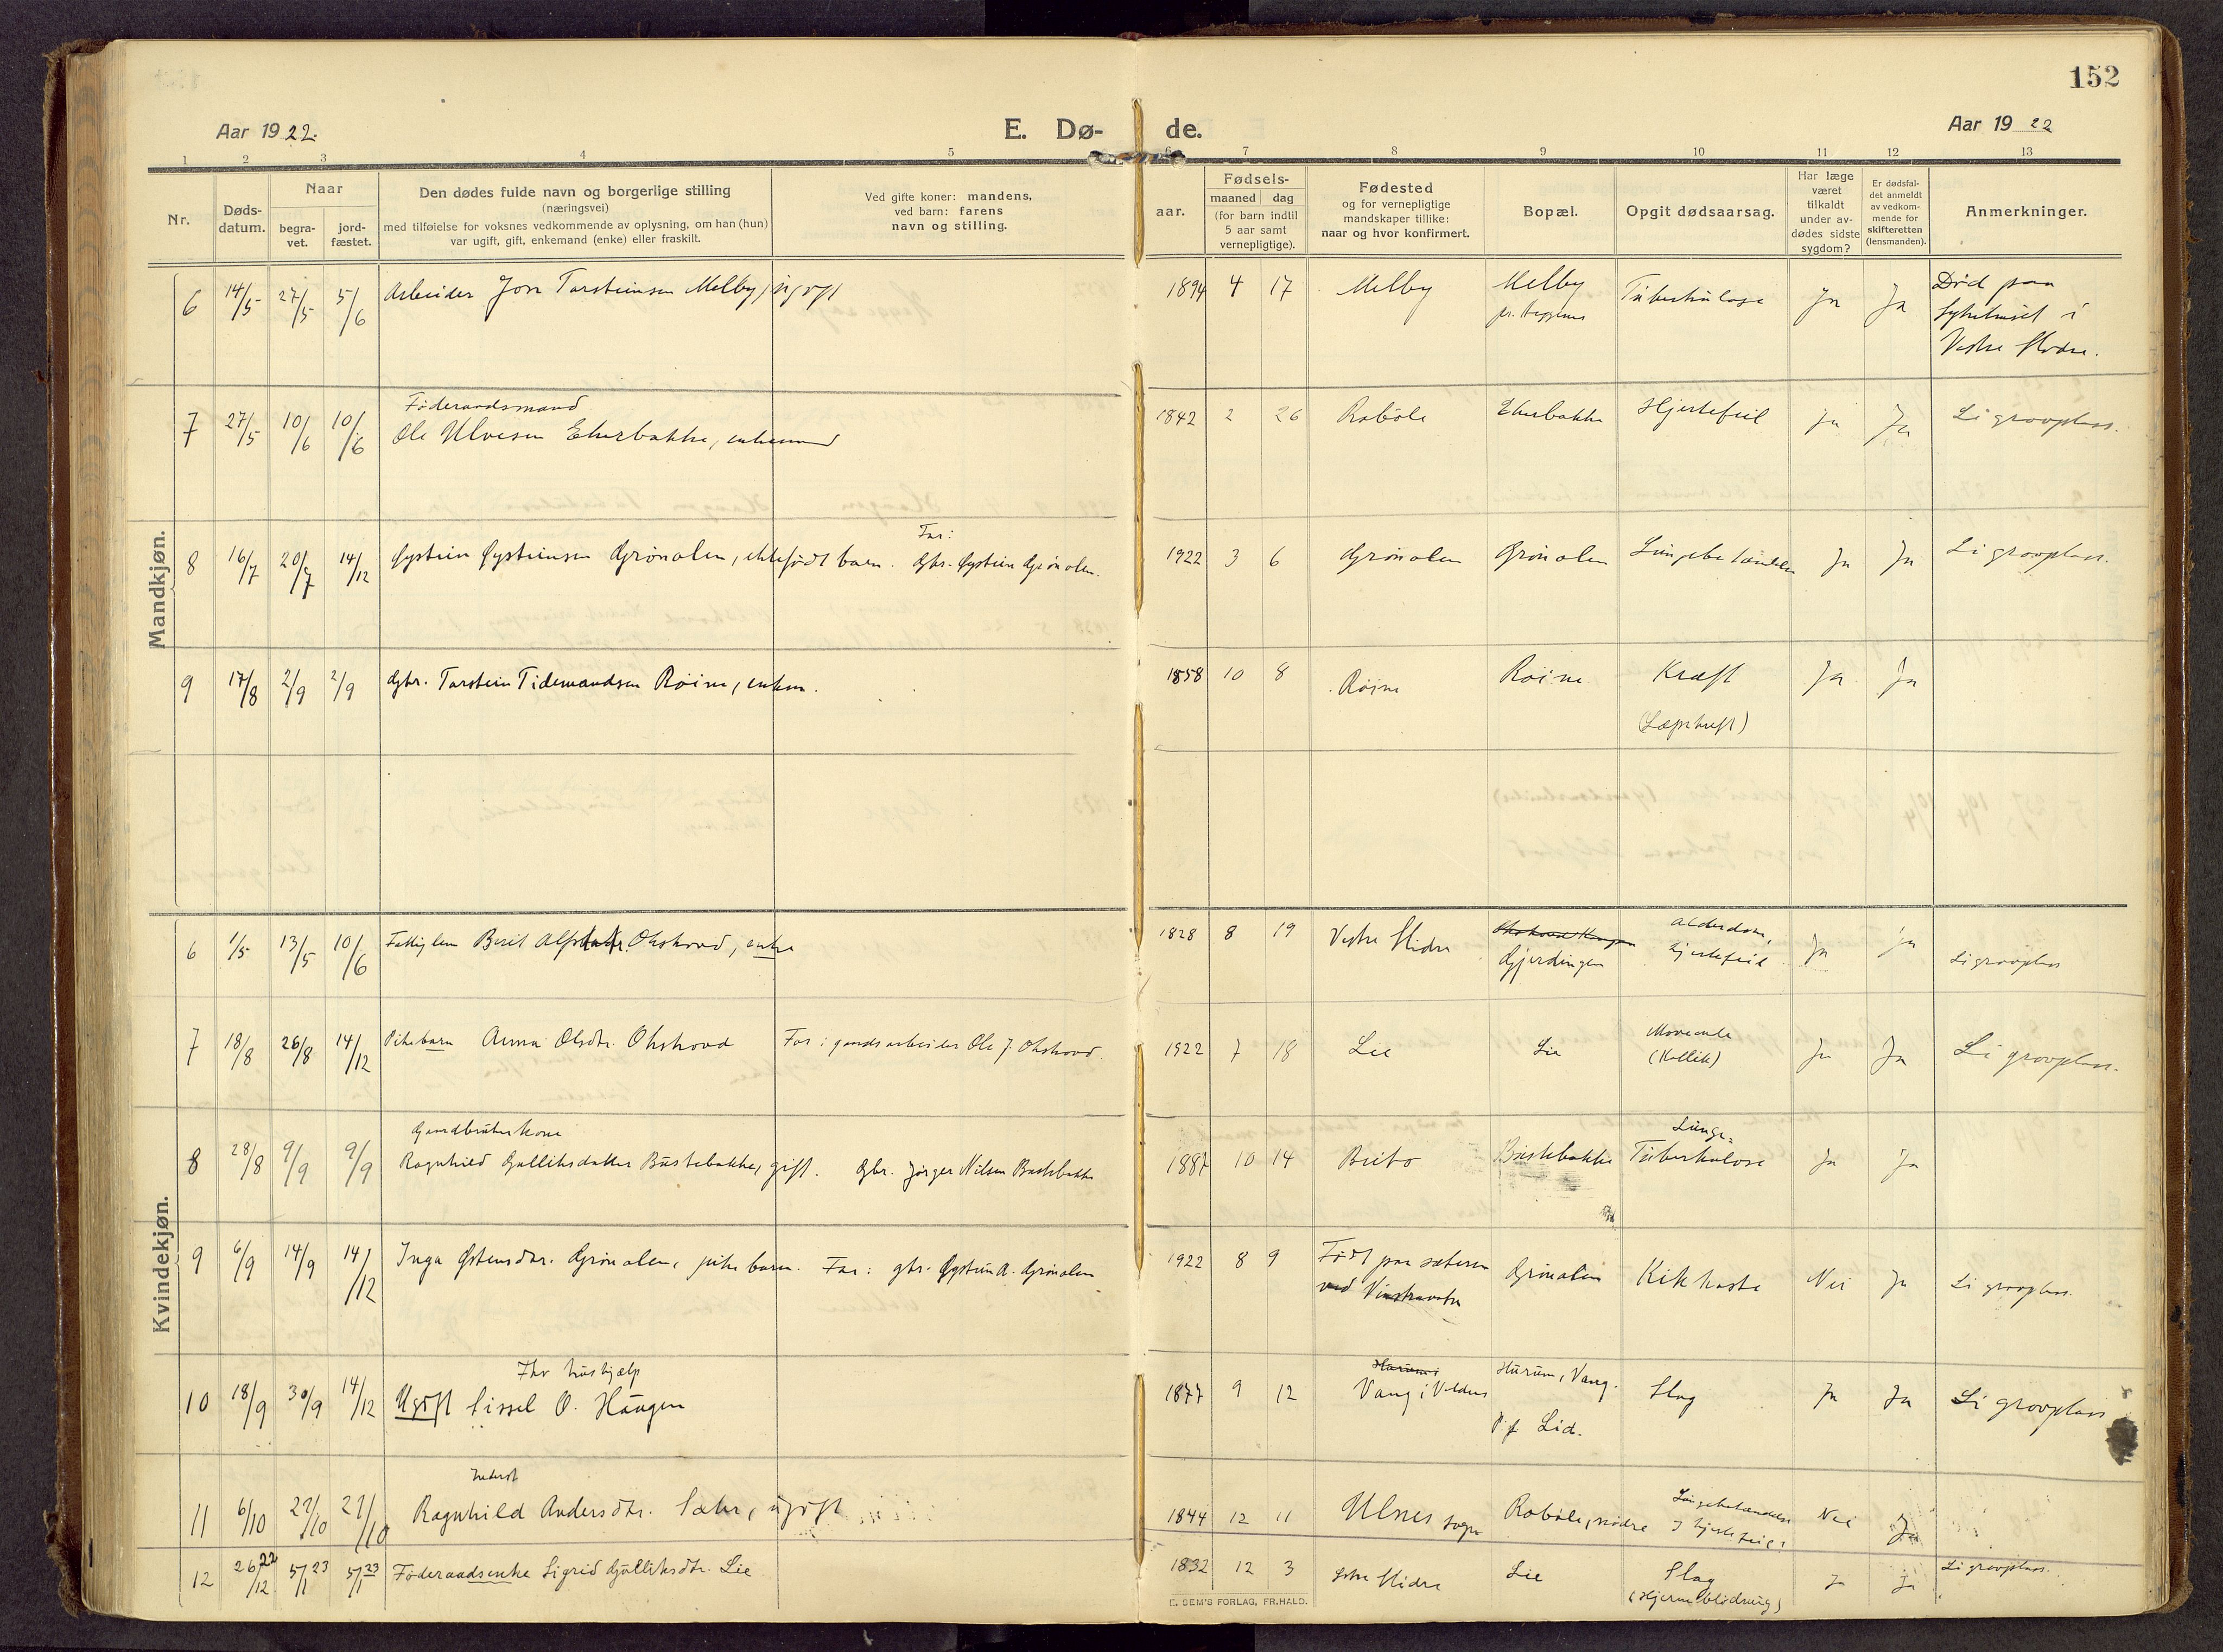 152
Aar 1922.
E. Dø- de.
Aar 1922
1 2 3 4 5 6 7 8 9 10 11 12 13
Nr.
Døds-
datum.
Naar
begra-
vet.
jord-
fæstet.
Den dødes fulde navn og borgerlige stilling
(næringsvei)
med tilføielse for voksnes vedkommende av oplysning, om han (hun)
var ugift, gift, enkemand (enke) eller fraskilt.
Ved gifte koner: mandens,
ved barn: farens
navn og stilling.
Fødsels-
aar.
maaned dag
(for barn indtil
5 aar samt
vernepligtige).
Fødested
og for vernepligtige
mandskaper tillike:
naar og hvor konfirmert.
Bopæl.
Opgit dødsaarsag.
Har læge
været
tilkaldt
under av-
dødes sidste
sygdom?
Er dødsfal-
det anmeldt
av vedkom-
mende for
skifteretten
(lensmanden).
Anmerkninger.
Mandkjøn.
6 14/5 27/5 5/6 Arbeider Jon Torsteinsen Melby, ugift 1894 4 17 Melby Melby Tuberkulose Ja Ja Død paa
sykehuset i
Vestre Slidre.
7 27/5 10/6 10/6 Føderaadsmand
Ole Ulvesen Ekerbakke, enkemand 1842 2 26 Robøle Ekerbakke Hjertefeil Ja Ja Li gravplass.
8 16/7 20/7 14/12 Øystein Øysteinsen Grønolen, ektefødt barn. Far:
Gbr. Øystein Grønolen. 1922 3 6 Grønolen Grønolen Lungebetændelse Ja Ja Li gravplass.
9 17/8 2/9 2/9 Gbr. Torstein Tidemandsen Røine, enkem. 1858 10 8 Røine Røine Kræft Ja Ja
Kvindekjøn.
6 1/5 13/5 10/6 Fattiglem Berit Okshovd, enke 1828 8 19 Vestre Slidre Gjerdingen Alderdom,
hjertefeil Ja Ja Li gravplass
7 18/8 26/8 14/12 Pikebarn Anna Olsdtr. Okshovd Far: gaardsarbeider Ole J. Okshovd. 1922 7 18 Lie Lie (Kollik) Ja Ja Li gravplass.
8 28/8 9/9 9/9 Gaardbrukerkone
Ragnhild Gulliksdatter Bustebakke, gift. Gbr. Jørger Nilsen Bustebakke 1887 10 14 Beito Bustebakke Lunge-
Tuberkulose Ja Ja
9 6/9 14/9 14/12 Inga Østensdtr. Grønolen, pikebarn. Far: gbr. Øystein A. Grønolen 1922 8 9 Født paa sæteren
ved Vinstravatn Grønolen Kikhoste Nei Ja Li gravplass.
10 18/9 30/9 14/12 Fhv hushjælp
Ugift Sissel O. Haugen 1877 9 12 Vang i Valdres Hurum, Vang.
Lid. Slag Ja Ja Li gravplass
11 6/10 27/10 27/10 Inderst
Ragnhild Andersdtr. Sæhr, ugift 1844 12 11 Ulnes sogn Robøle, nødre Lungebetændelse
og hjertefeil Nei Ja
12 26/12 22 5/1 23 5/1 23 Føderaadsenke Sigrid Gulliksdtr. Lie 1832 12 3 Østre Slidre Lie Slag
(Hjerneblødning) Ja Ja Li gravplass.
E. SEM'S FORLAG, FR.HALD.